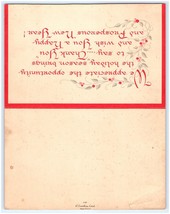 We appreciate the opportunity
the holiday season brings
to say.....Thank You
and wish You a Happy
and Prosperous New Year!